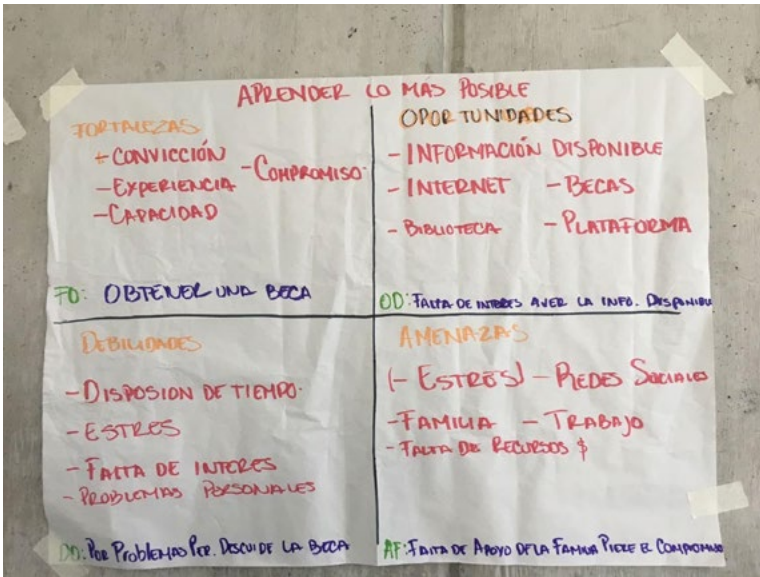 APRENDER LO MÁS POSIBLE
FORTALEZAS
- CONVICCIÓN
- EXPERIENCIA
- CAPACIDAD
- COMPROMISO.
FO: OBTENER UNA BECA
OPORTUNIDADES
- INFORMACIÓN DISPONIBLE
- INTERNET - BECAS
- BIBLIOTECA - PLATAFORMA
OD: FALTA DE INTERES AVER LA INFO. DISPONIBLE
DEBILIDADES
- DISPOSION DE TIEMPO.
- ESTRES
- FALTA DE INTERES
- PROBLEMAS PERSONALES
DO: POR PROBLEMAS PER. DESCUIDE LA BECA
AMENAZAS
(- ESTRÉS) - REDES SOCIALES
- FAMILIA - TRABAJO
- FALTA DE RECURSOS $
AF: FALTA DE APOYO DE LA FAMILIA PIERE EL COMPROMISO